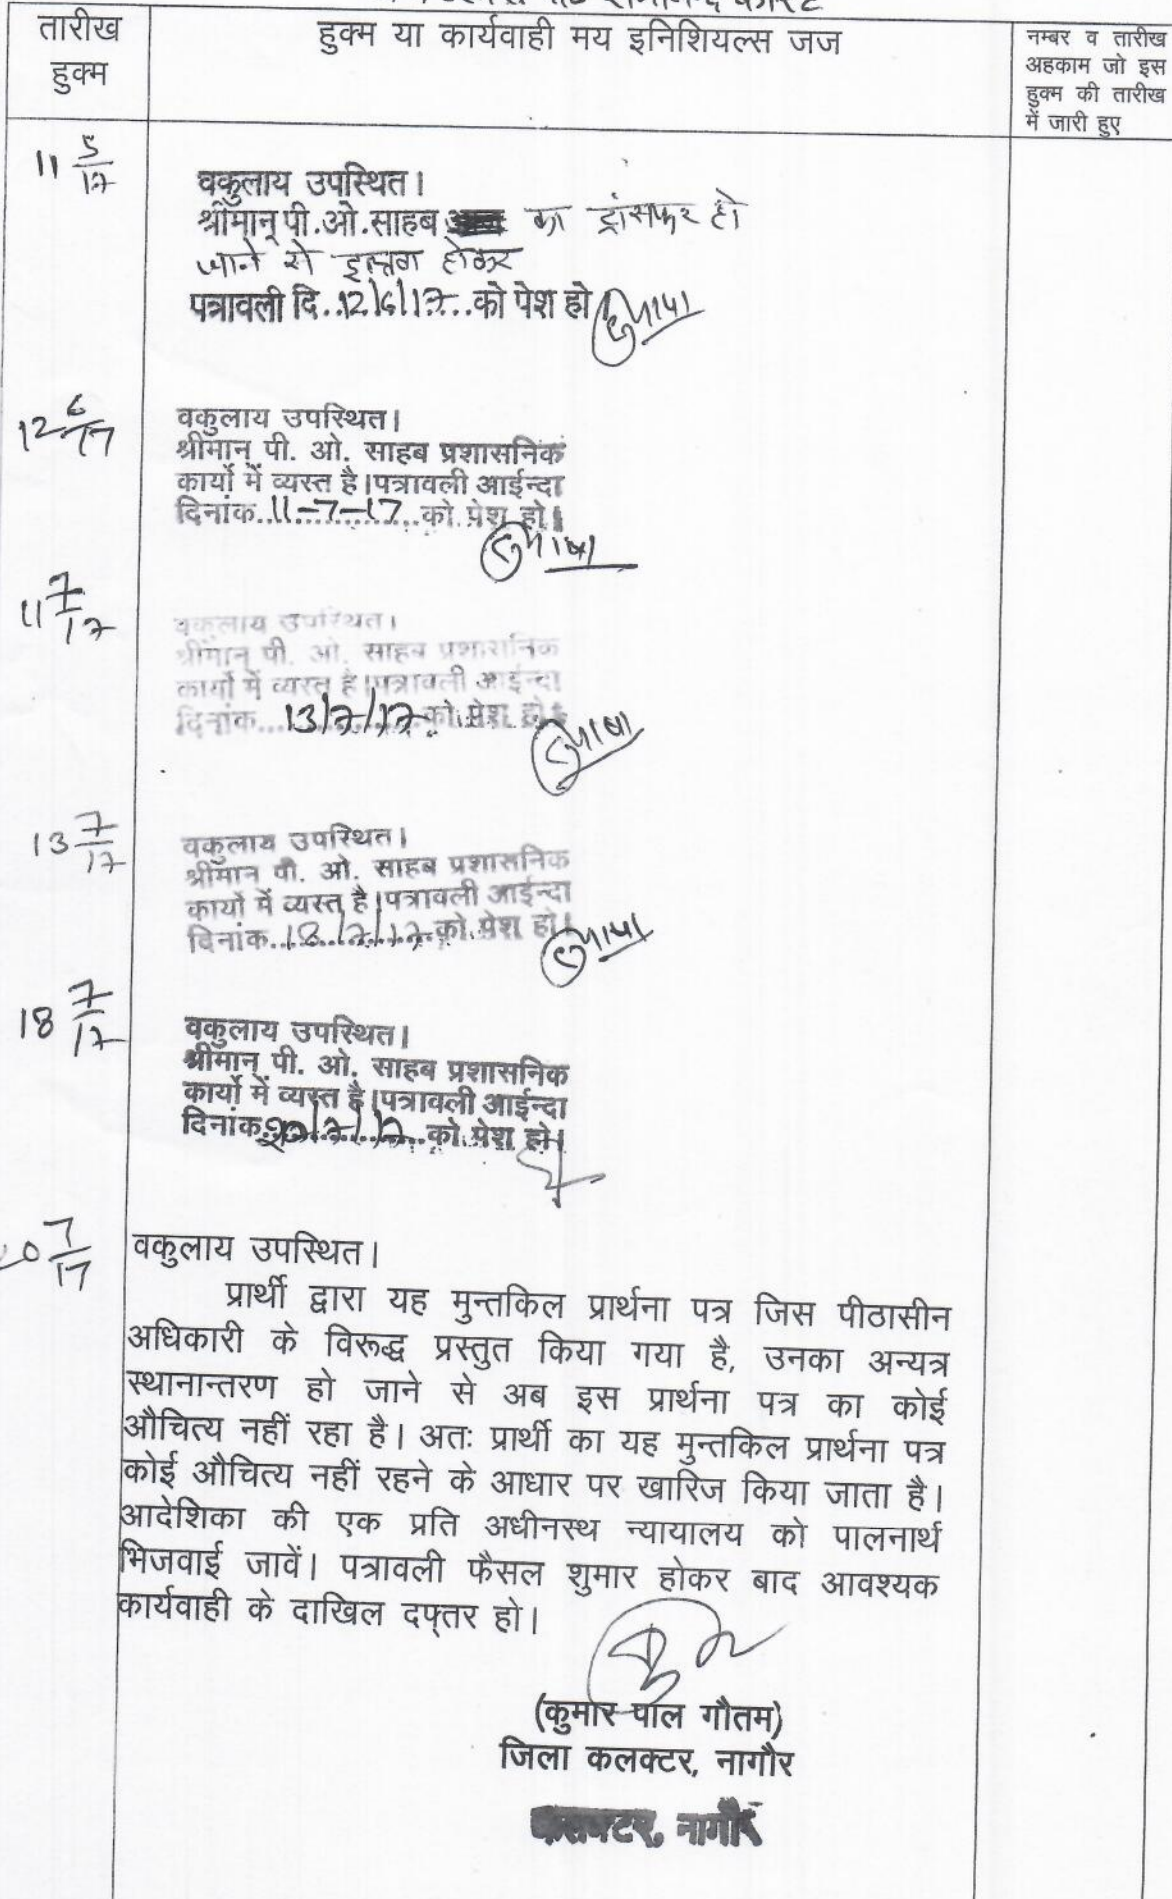 तारीख
हुक्म
हुक्म या कार्यवाही मय इनिशियल्स जज
नम्बर व तारीख
अहकाम जो इस
हुक्म की तारीख
में जारी हुए
11 5/17
वकुलाय उपस्थित।
श्रीमान् पी.ओ.साहब का ट्रांसफर हो
जाने से होकर
पत्रावली दि..12/6/17...को पेश हो
12 6/17
वकुलाय उपस्थित।
श्रीमान् पी. ओ. साहब प्रशासनिक
कार्यो में व्यस्त है।पत्रावली आईन्दा
दिनांक..11-7-17..को पेश हो।
11 7/17
वकुलाय उपस्थित।
श्रीमान् पी. ओ. साहब प्रशासनिक
कार्यो में व्यस्त है।पत्रावली आईन्दा
दिनांक...13/7/17..को पेश हो।
13 7/17
वकुलाय उपस्थित।
श्रीमान पी. ओ. साहब प्रशासनिक
कार्यो में व्यस्त है।पत्रावली आईन्दा
दिनांक..18/7/17..को पेश हो।
18 7/17
वकुलाय उपस्थित।
श्रीमान् पी. ओ. साहब प्रशासनिक
कार्यो में व्यस्त है।पत्रावली आईन्दा
दिनांक.20/7/17..को पेश हो।
20 7/17
वकुलाय उपस्थित।
प्रार्थी द्वारा यह मुन्तकिल प्रार्थना पत्र जिस पीठासीन
अधिकारी के विरूद्ध प्रस्तुत किया गया है, उनका अन्यत्र
स्थानान्तरण हो जाने से अब इस प्रार्थना पत्र का कोई
औचित्य नहीं रहा है। अतः प्रार्थी का यह मुन्तकिल प्रार्थना पत्र
कोई औचित्य नहीं रहने के आधार पर खारिज किया जाता है।
आदेशिका की एक प्रति अधीनस्थ न्यायालय को पालनार्थ
भिजवाई जावें। पत्रावली फैसल शुमार होकर बाद आवश्यक
कार्यवाही के दाखिल दफ्तर हो।
(कुमार पाल गौतम)
जिला कलक्टर, नागौर
कलक्टर, नागौर